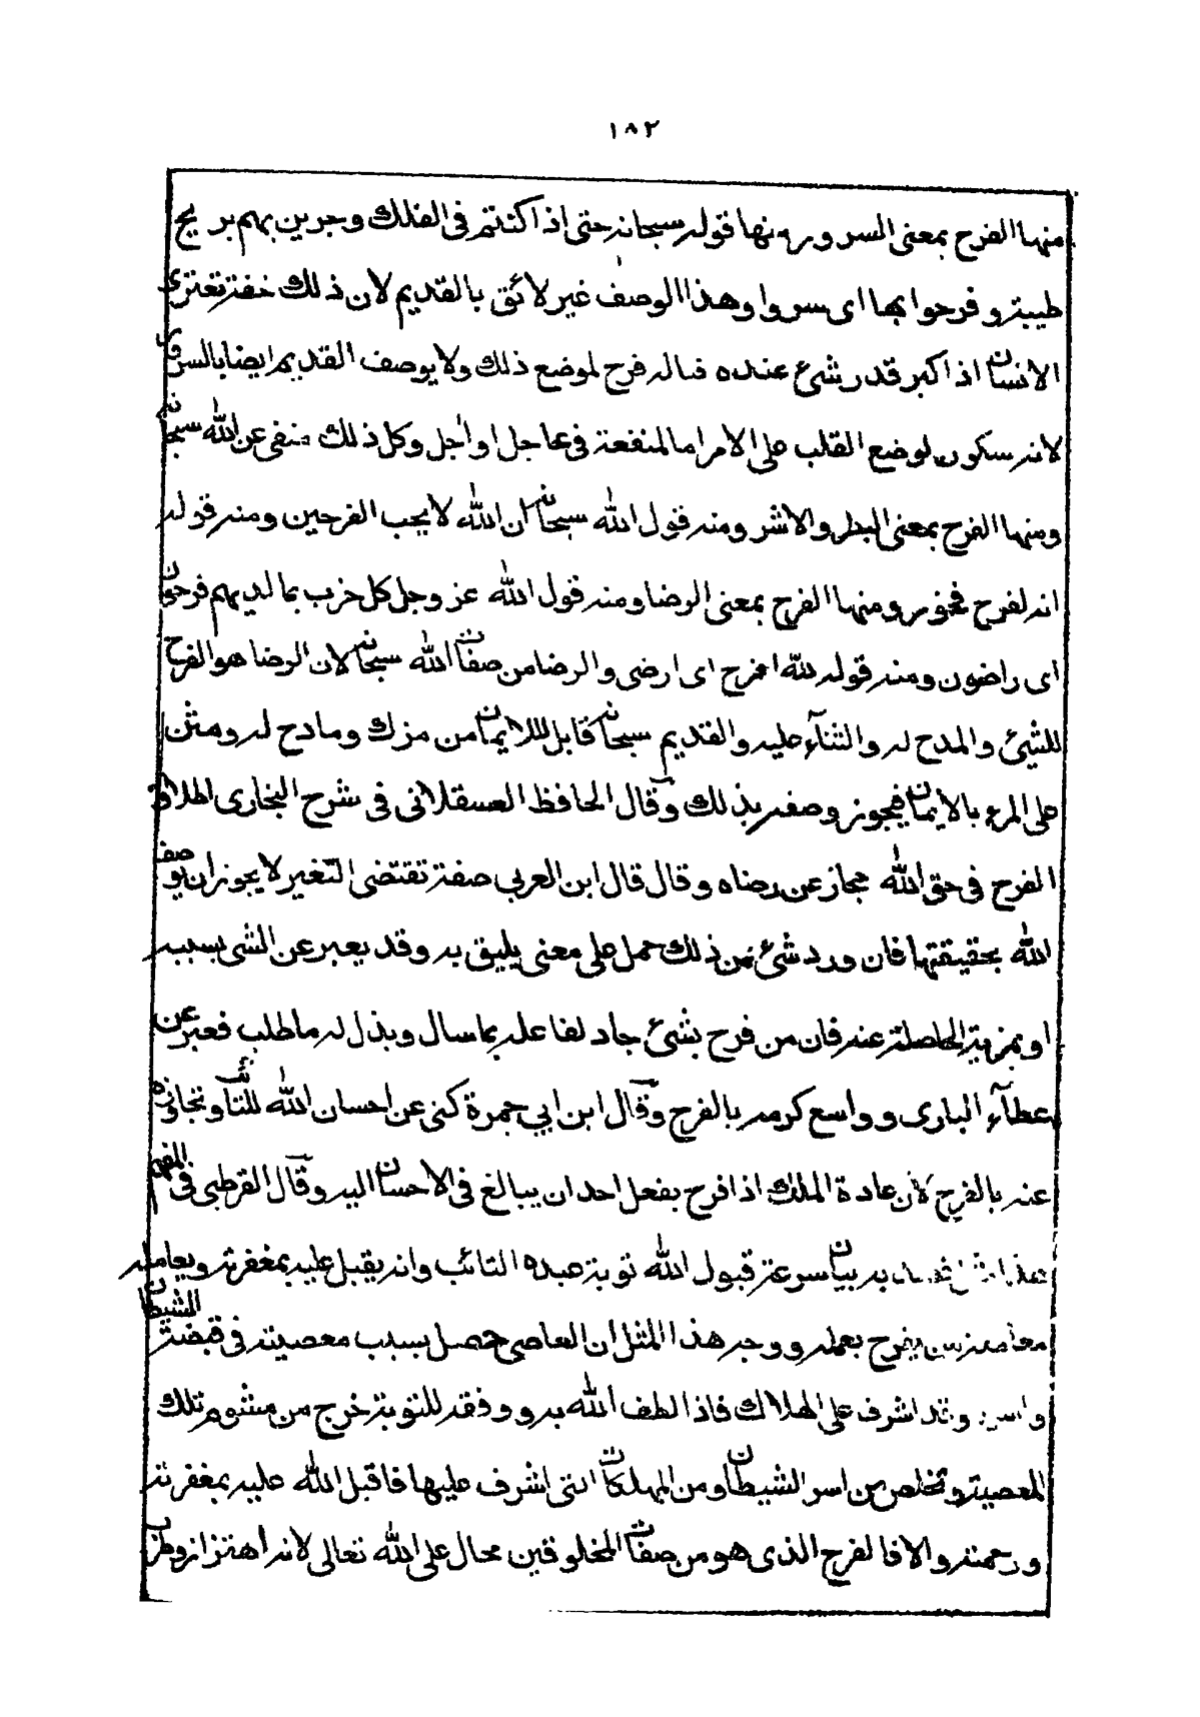 ١٨٢
منها الفرح بمعنى السرور ومنها قوله سبحانه حتى اذا كنتم في الفلك وجرين بهم بريح
طيبة وفرحوا بها اى سروا وهذا الوصف غير لائق بالقديم لان ذلك خفة تعترى
الانسان اذا كبر قدر شئ عنده فناله فرح لموضع ذلك ولا يوصف القديم ايضا بالسرور
لانه سكون لوضع القلب على الامر اما لمنفعة في عاجل او اجل وكل ذلك منفى عن الله سبحانه
ومنها الفرح بمعنى البطر والاشر ومنه قول الله سبحانه ان الله لا يحب الفرحين ومنه قوله
انه لفرح فخور ومنها الفرح بمعنى الرضا ومنه قول الله عز وجل كل حزب بما لديهم فرحون
اى راضون ومنه قوله لله افرح اى ارضى والرضا من صفات الله سبحانه لان الرضا هو الفرح
للشئ والمدح له والثناء عليه والقديم سبحانه قابل للايمان من مزك ومادح له ومثن
على المرء بالايمان فيجوز وصفه بذلك وقال الحافظ العسقلانى فى شرح البخارى اطلاق
الفرح فى حق الله مجاز عن رضاه وقال قال ابن العربي صفة تقتضى التغير لا يجوز ان يوصف
الله بحقيقتها فان ورد شئ من ذلك حمل على معنى يليق به وقد يعبر عن الشى بسببه
او بمزية الحاصلة عنه فان من فرح بشئ جاد لفاعله بما سال وبذل له ما طلب فعبر عن
عطآء البارى وواسع كرمه بالفرح وقال ابن ابي جمرة كنى عن احسان الله للتائب وتجاوزه
عنه بالفرح لان عادة الملك اذا فرح بفعل احد ان يبالغ فى الاحسان اليه وقال القرطبى فى المفهم
هذا به بيان سرعة قبول الله توبة عبده التائب وانه يقبل عليه بمغفرته ويعامله
معاملة من يفرح بعمله ووجه هذا المثل ان العاصى حصل بسبب معصيته فى قبضة الشيطان
واسره وقد اشرف على الهلاك فاذا لطف الله به ووفقه للتوبة خرج من مشئوم تلك
المعصية وتخلص من اسر الشيطان ومن المهلكات التى اشرف عليها فاقبل الله عليه بمغفرته
ورحمته والا فالفرح الذى هو من صفات المخلوقين محال على الله تعالى لانه اهتزاز وطرب